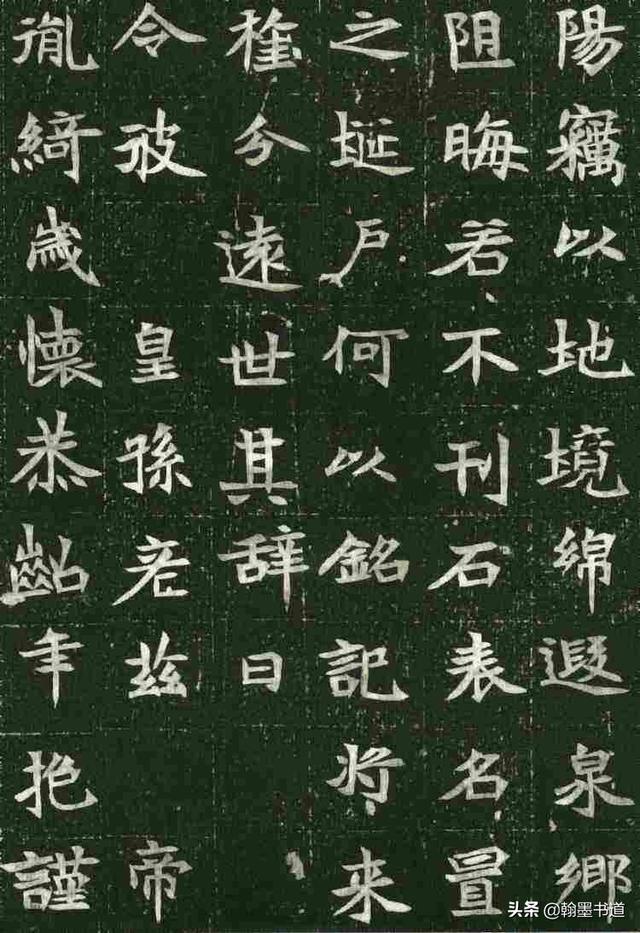 陽竊以地境綿遐泉鄉
阻晦若不刊石表名置
之埏戶何以銘記将来
分遠世其辞曰
令彼皇孫兹帝
胤綺歲懷恭齠年抱謹
头条 @翰墨书道